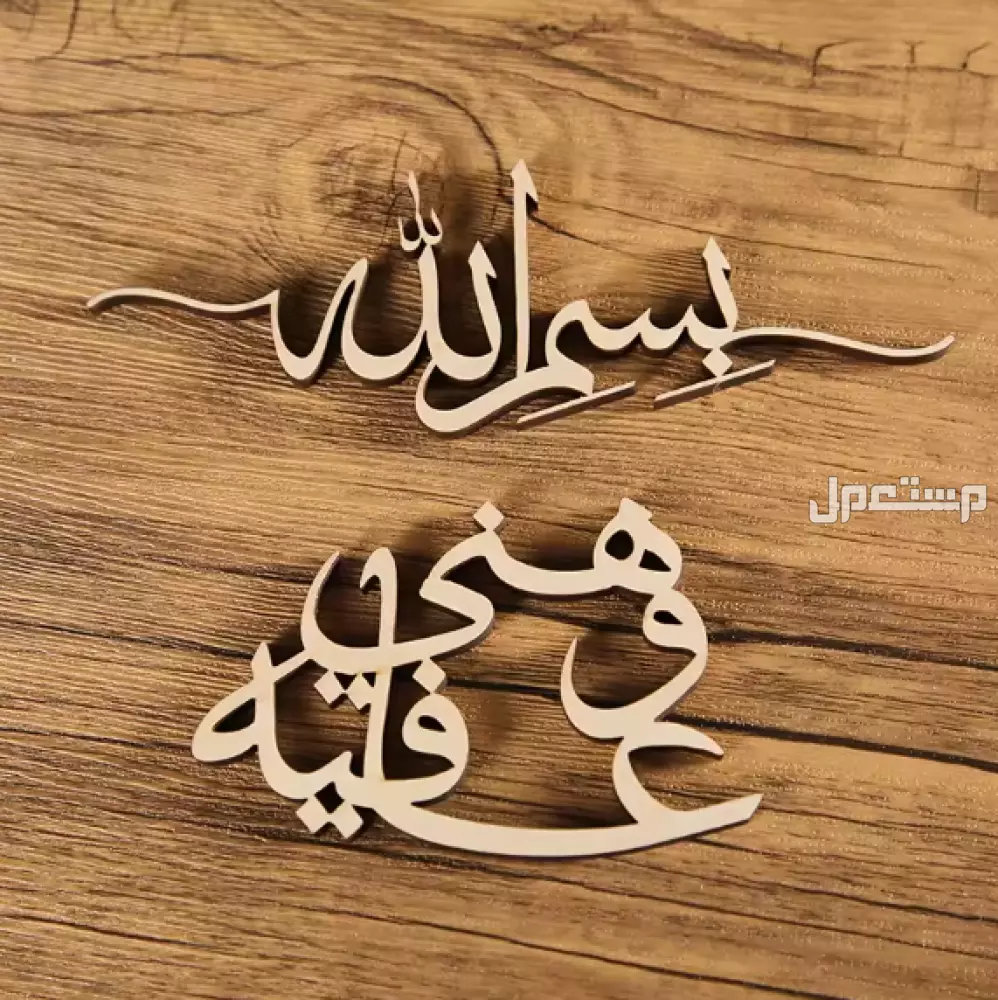 بِسمِ اللّٰه
هني
و
عافيه
مستعمل